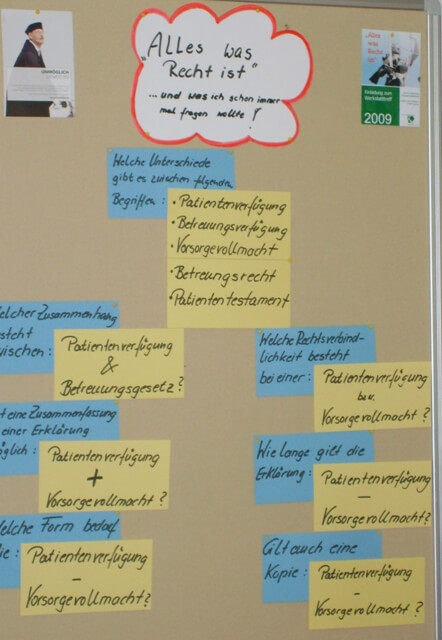 „Alles was
Recht ist"
...und was ich schon immer
mal fragen wollte!
UNMÖGLICH
„Alles
was
Recht
ist"
Einladung zum
2009
Welche Unterschiede
gibt es zwischen folgenden
Begriffen:
• Patientenverfügung
• Betreuungsverfügung
• Vorsorgevollmacht
• Betreungsrecht
• Patiententestament
elcher Zusammenhang
esteht
wischen:
Patientenverfügung
&
Betreuungsgesetz?
t eine Zusammenfassung
einer Erklärung
öglich:
Patientenverfügung
+
Vorsorgevollmacht?
elche Form bedarf
ie:
Patientenverfügung
–
Vorsorgevollmacht?
Welche Rechtsverbind-
lichkeit besteht
bei einer:
Patientenverfügung
bzw.
Vorsorgevollmacht?
Wie lange gilt die
Erklärung:
Patientenverfügung
–
Vorsorgevollmacht?
Gilt auch eine
Kopie:
Patientenverfügung
–
Vorsorgevollmacht?